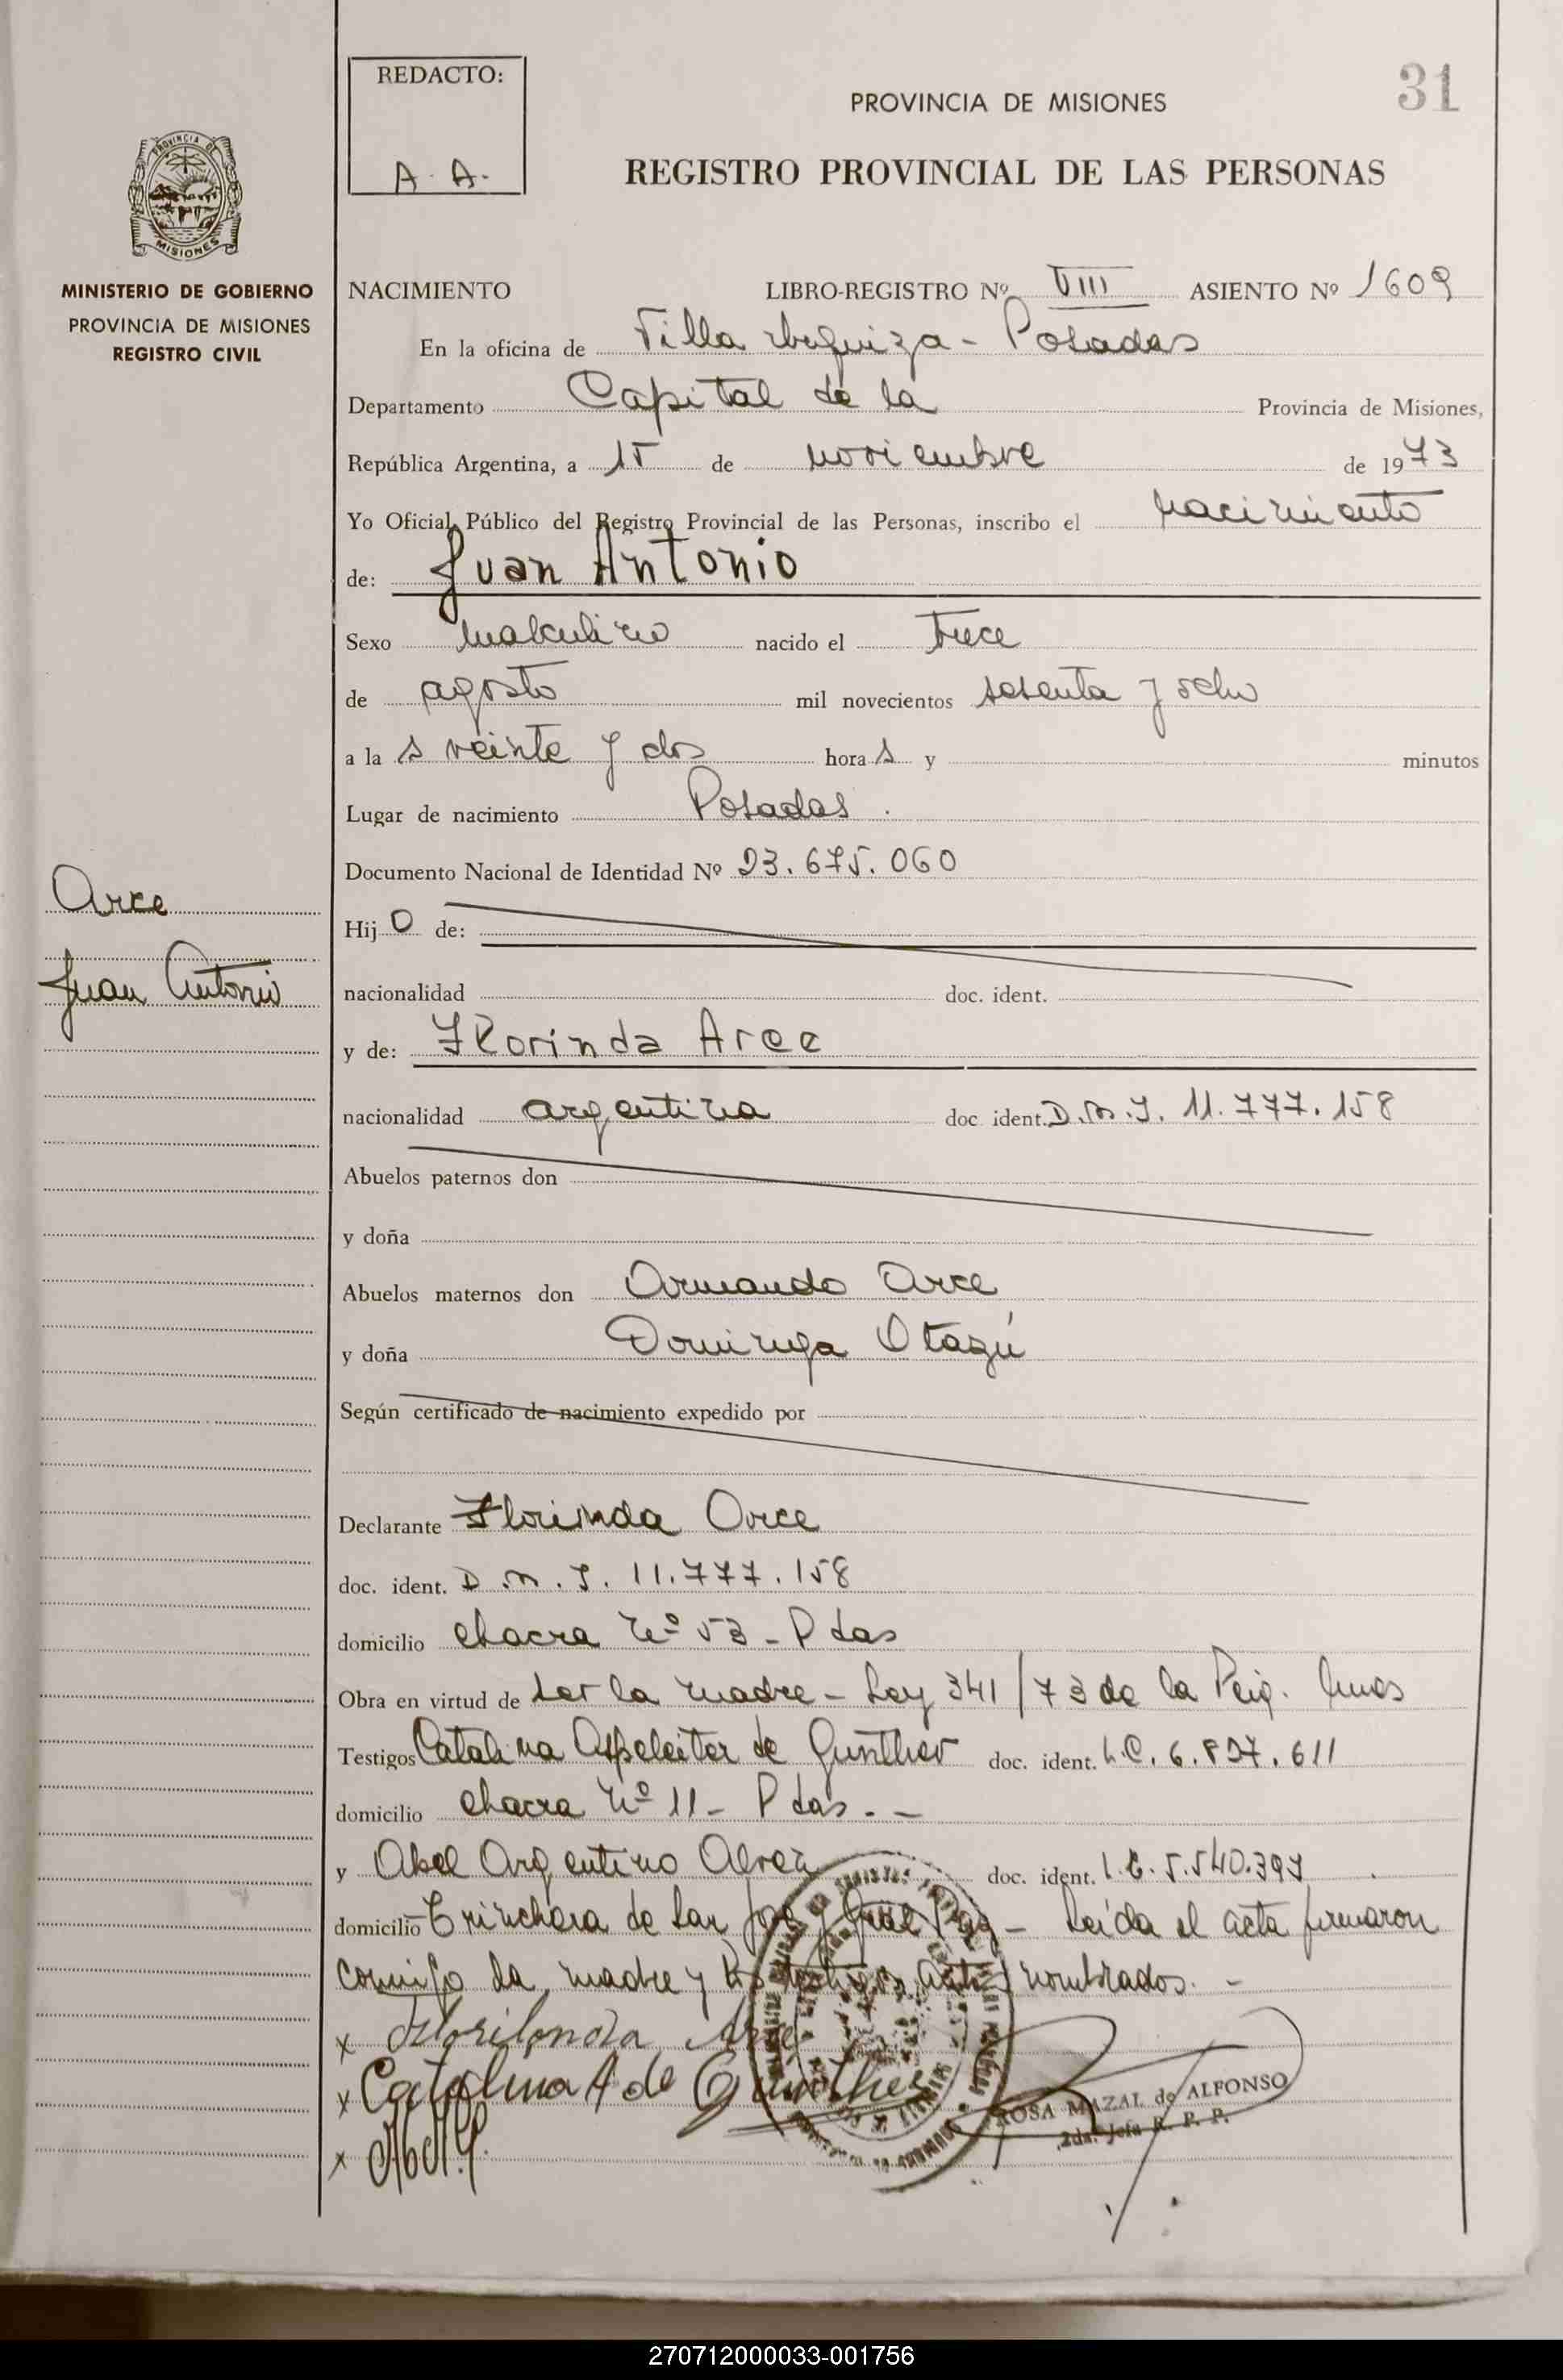 REDACTO:
A. A.
31
PROVINCIA DE MISIONES
REGISTRO PROVINCIAL DE LAS PERSONAS
PROVINCIA DE
MISIONES
MINISTERIO DE GOBIERNO
PROVINCIA DE MISIONES
REGISTRO CIVIL
NACIMIENTO LIBRO-REGISTRO Nº VIII ASIENTO Nº 1609
En la oficina de Villa Urquiza - Posadas
Departamento Capital de la Provincia de Misiones,
República Argentina, a 15 de noviembre de 1973
Yo Oficial Público del Registro Provincial de las Personas, inscribo el nacimiento
de: Juan Antonio
Sexo masculino nacido el trece
de agosto mil novecientos sesenta y ocho
a la s veinte y dos hora s y minutos
Lugar de nacimiento Posadas.
Documento Nacional de Identidad Nº 23.675.060
Arce
Juan Antonio
Hij o de:
nacionalidad doc. ident.
y de: Florinda Arce
nacionalidad argentina doc ident. D.N.I. 11.777.158
Abuelos paternos don
y doña
Abuelos maternos don Armando Arce
y doña Dominga Otazú
Según certificado de nacimiento expedido por
Declarante Florinda Arce
doc. ident. D.N.I. 11.777.158
domicilio chacra Nº 53 - Pdas
Obra en virtud de ser la madre - Ley 341/73 de la Pcia. Mnes
Testigos Catalina de Günther doc. ident. L.C. 6.827.611
domicilio chacra Nº 11 - Pdas. -
y Abel Argentino doc. ident. L.E. 5.540.397
domicilio Trinchera de San José y Gral Paz - Leída el acta firmaron
conmigo la madre y los testigos antes nombrados. -
x Arce
x Catalina A de Günther
x
ROSA MAZAL de ALFONSO
2da. Jefa R. P. P.
270712000033-001756